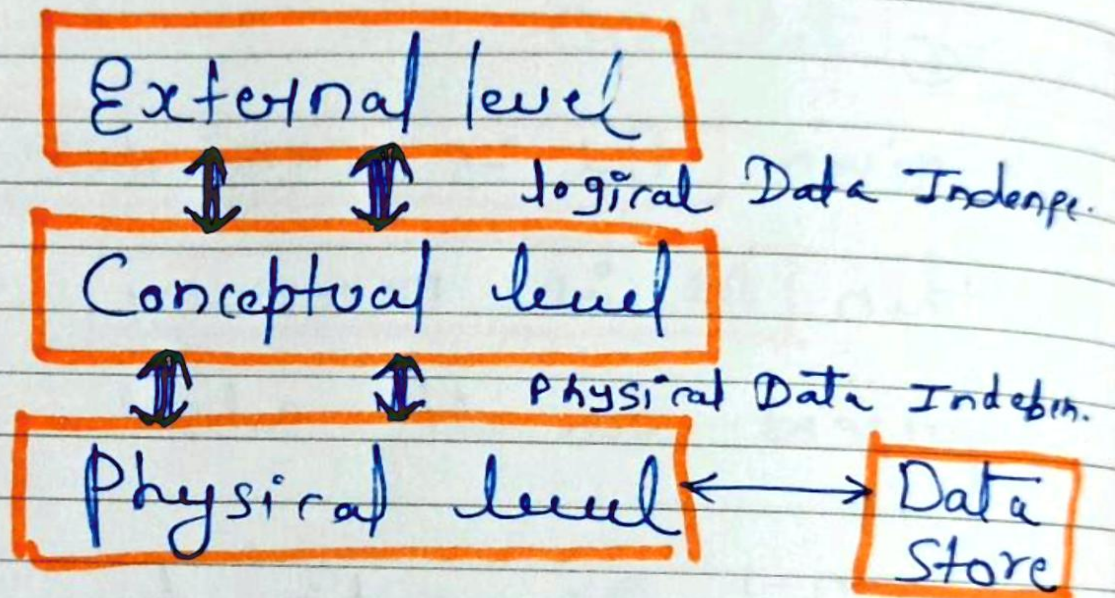 External level
logical Data Indenpe.
Conceptual level
Physical Data Indebin.
Physical level
Data
Store